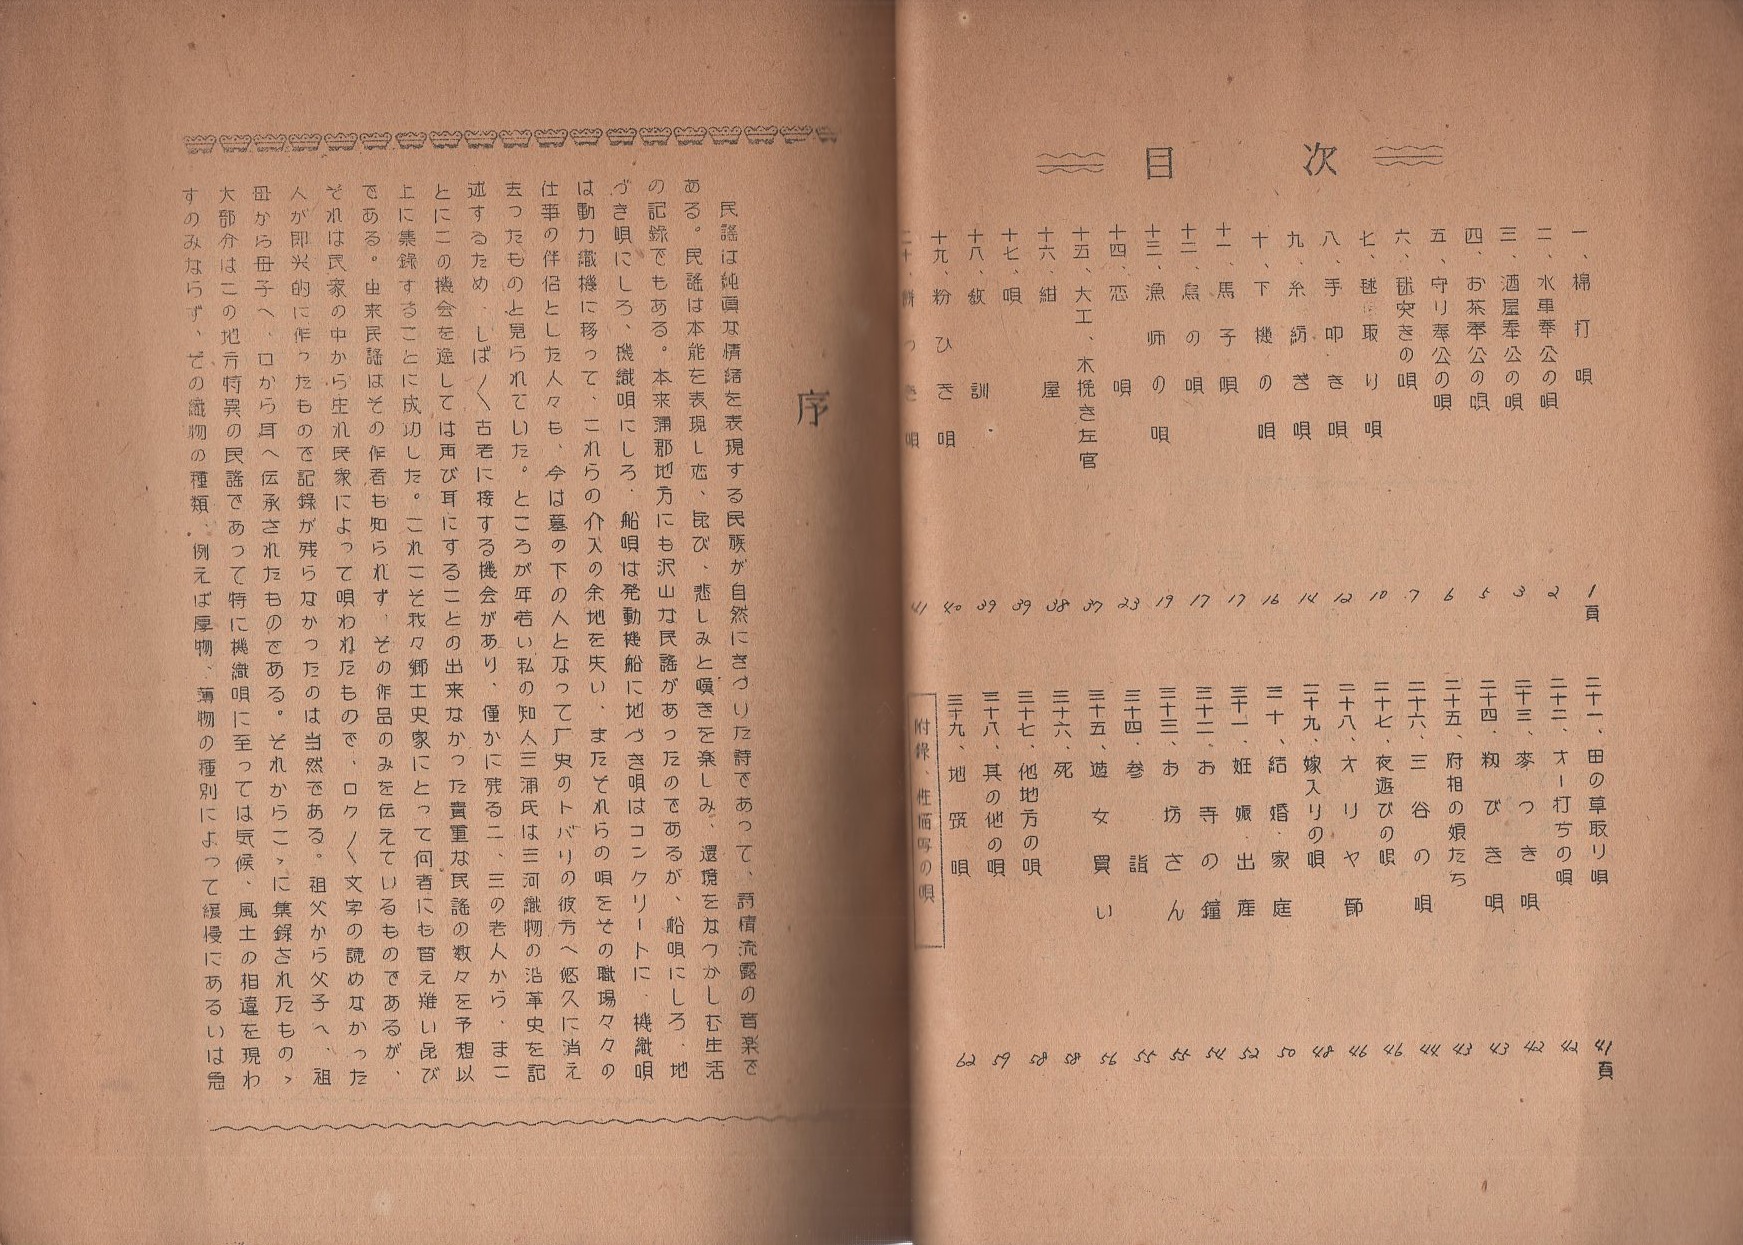 目次
一、棉打唄 1頁
二、水車奉公の唄 2
三、酒屋奉公の唄 3
四、お茶奉公の唄 5
五、守り奉公の唄 6
六、毬突きの唄 7
七、毬取り唄 10
八、手叩き唄 12
九、糸紡ぎ唄 14
十、下機の唄 16
十一、馬子唄 17
十二、鳥の唄 17
十三、漁師の唄 19
十四、恋唄 23
十五、大工、木挽き左官 37
十六、紺屋 38
十七、唄 39
十八、敎訓 39
十九、粉ひき唄 40
二十、餅つき唄 41
二十一、田の草取り唄 41頁
二十二、オー打ちの唄 42
二十三、麥つき唄 42
二十四、籾びき唄 43
二十五、府相の娘たち 43
二十六、三谷の唄 44
二十七、夜遊びの唄 46
二十八、オリヤ節 46
二十九、嫁入りの唄 48
三十、結婚家庭 50
三十一、妊娠出産 52
三十二、お寺の鐘 54
三十三、お坊さん 55
三十四、参詣 55
三十五、遊女買い 56
三十六、死 58
三十七、他地方の唄 58
三十八、其の他の唄 59
三十九、地築唄 62
附録、性描写の唄
序
民謡は純眞な情緒を表現する民族が自然にきづりた詩であって、詩情流露の音楽で
ある。民謡は本能を表現し恋、昆び、悲しみと嘆きを楽しみ、還境をなつかしむ生活
の記録でもある。本来蒲郡地方にも沢山な民謡があったのであるが、船唄にしろ、地
づき唄にしろ、機織唄にしろ、船唄は発動機船に地づき唄はコンクリートに、機織唄
は動力織機に移って、これらの介入の余地を失い、またそれらの唄をその職場々々の
仕事の伴侶とした人々も、今は墓の下の人となって厂史のトバリの彼方へ悠久に消え
去ったものと見られていた。ところが年若い私の知人三浦氏は三河織物の沿革史を記
述するため、しば〳〵古老に接する機会があり、僅かに残る二、三の老人から、まこ
とにこの機会を逸しては再び耳にすることの出来なかった貴重な民謡の数々を予想以
上に集録することに成功した。これこそ我々郷土史家にとって何者にも替え難い昆び
である。由来民謡はその作者も知られず、その作品のみを伝えているものであるが、
それは民衆の中から生れ民衆によって唄われたもので、ロク〳〵文字の読めなかった
人が即興的に作ったもので記録が残らなかったのは当然である。祖父から父子へ、祖
母から母子へ、口から耳へ伝承されたものである。それからこゝに集録されたものゝ
大部分はこの地方特異の民謡であって特に機織唄に至っては気候、風土の相違を現わ
すのみならず、その織物の種類、例えば厚物、薄物の種別によって緩慢にあるいは急